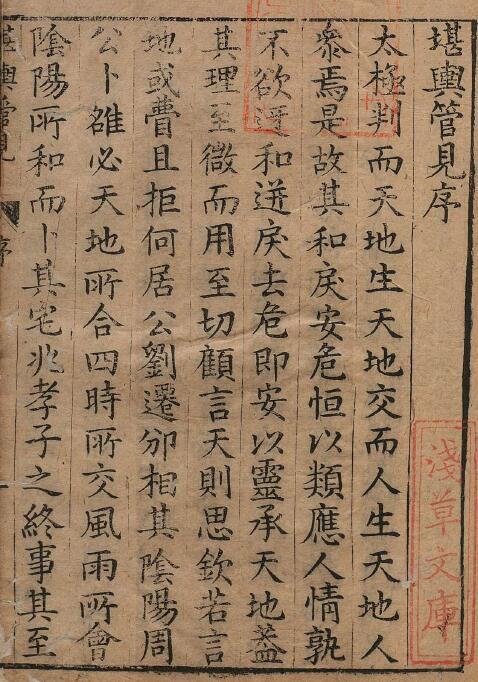 堪輿管見序
太極判而天地生天地交而人生天地人
叅焉是故其和戾安危恒以類應人情孰
不欲迓和迸戾去危即安以靈承天地蓋
其理至微而用至切顧言天則思欽若言
地或瞢且拒何居公劉遷邠相其陰陽周
公卜雒必天地所合四時所交風雨所會
陰陽所和而卜其宅兆孝子之終事其至
堪輿管見
序
淺草文庫